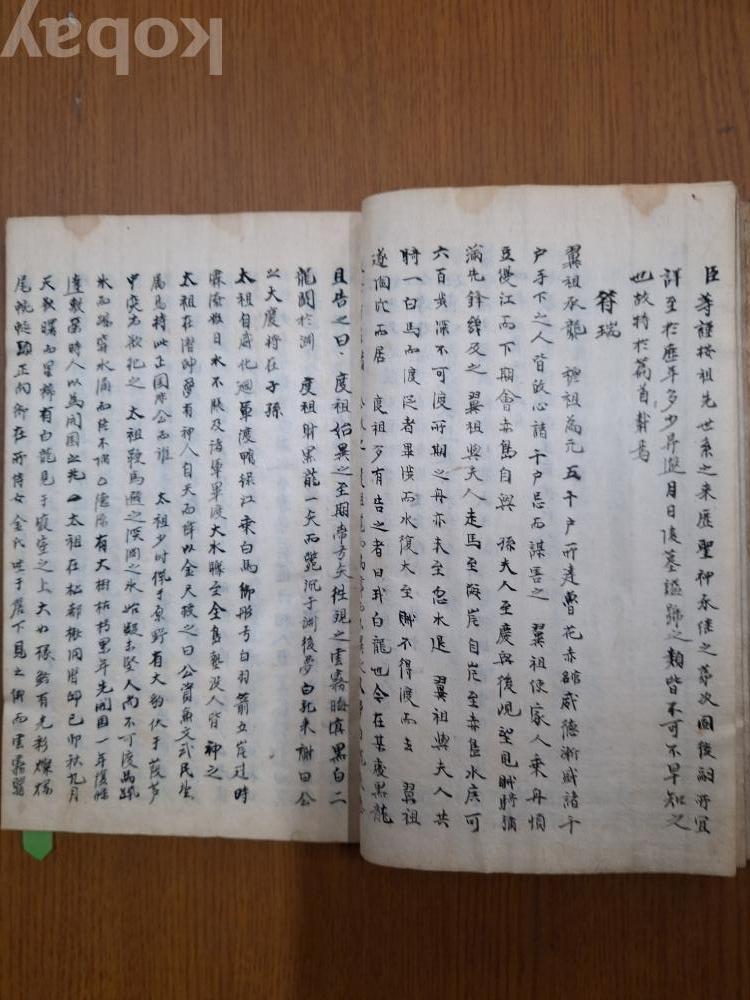 臣等謹按祖先世系之来歷聖神承継之第次国後嗣所宜
詳至於歷年多少昇遐月日陵墓謚號之類皆不可不早知之
也故特於篇首載焉
符瑞
翼祖承龍 穆祖為元五千户所達魯花赤舘威德漸盛諸千
户手下之人皆故心諸千户忌而謀害之 翼祖使家人乗舟順
豆漫江而下期會赤島自與 孫夫人至慶興後峴望見賊將猶
滿先鋒幾及之 翼祖與夫人走馬至海岸自岸至赤島水廣可
六百步深不可渡所期之舟亦未至忽水退 翼祖與夫人共
騎一白馬而渡從者畢渡而水復大至賊不得渡而去 翼祖
遂陶穴而居 度祖夢有告之者曰我白龍也今在某處黒龍
且告之曰 度祖始異之至期帶弓矢往現之雲霧晦冥黒白二
龍鬪於渊 度祖射黒龍一矢而斃沉于渊後夢白龍来謝曰公
之大慶將在子孫
太祖自威化廻軍渡鴨綠江乘白馬御彤弓白羽箭立岸過時
霖潦数日水不脹及諸軍畢渡大水驟至全島墊没人皆神之
太祖在潜邸夢有神人自天而降以金尺授之曰公資魚文武民望
属焉持此正国非公而誰 太祖少時獵于原野有大豹伏于葭芦
中突出欲犯之 太祖鞭馬避之深渊之氷始凝未堅人尚不可渡馬跳
氷而踏穿水涌而終不陥 德源有大樹枯朽累年先開国一年復條
達敷榮時人以為開国之兆 太祖在松都楸洞潜邸己卯秋九月
天欲曙而星稀有白龍見于寢室之上大如椽鮮有光彩燦爛
尾蜿蜒頭正向御在所侍女金氏坐于簷下見之俄而雲霧翳